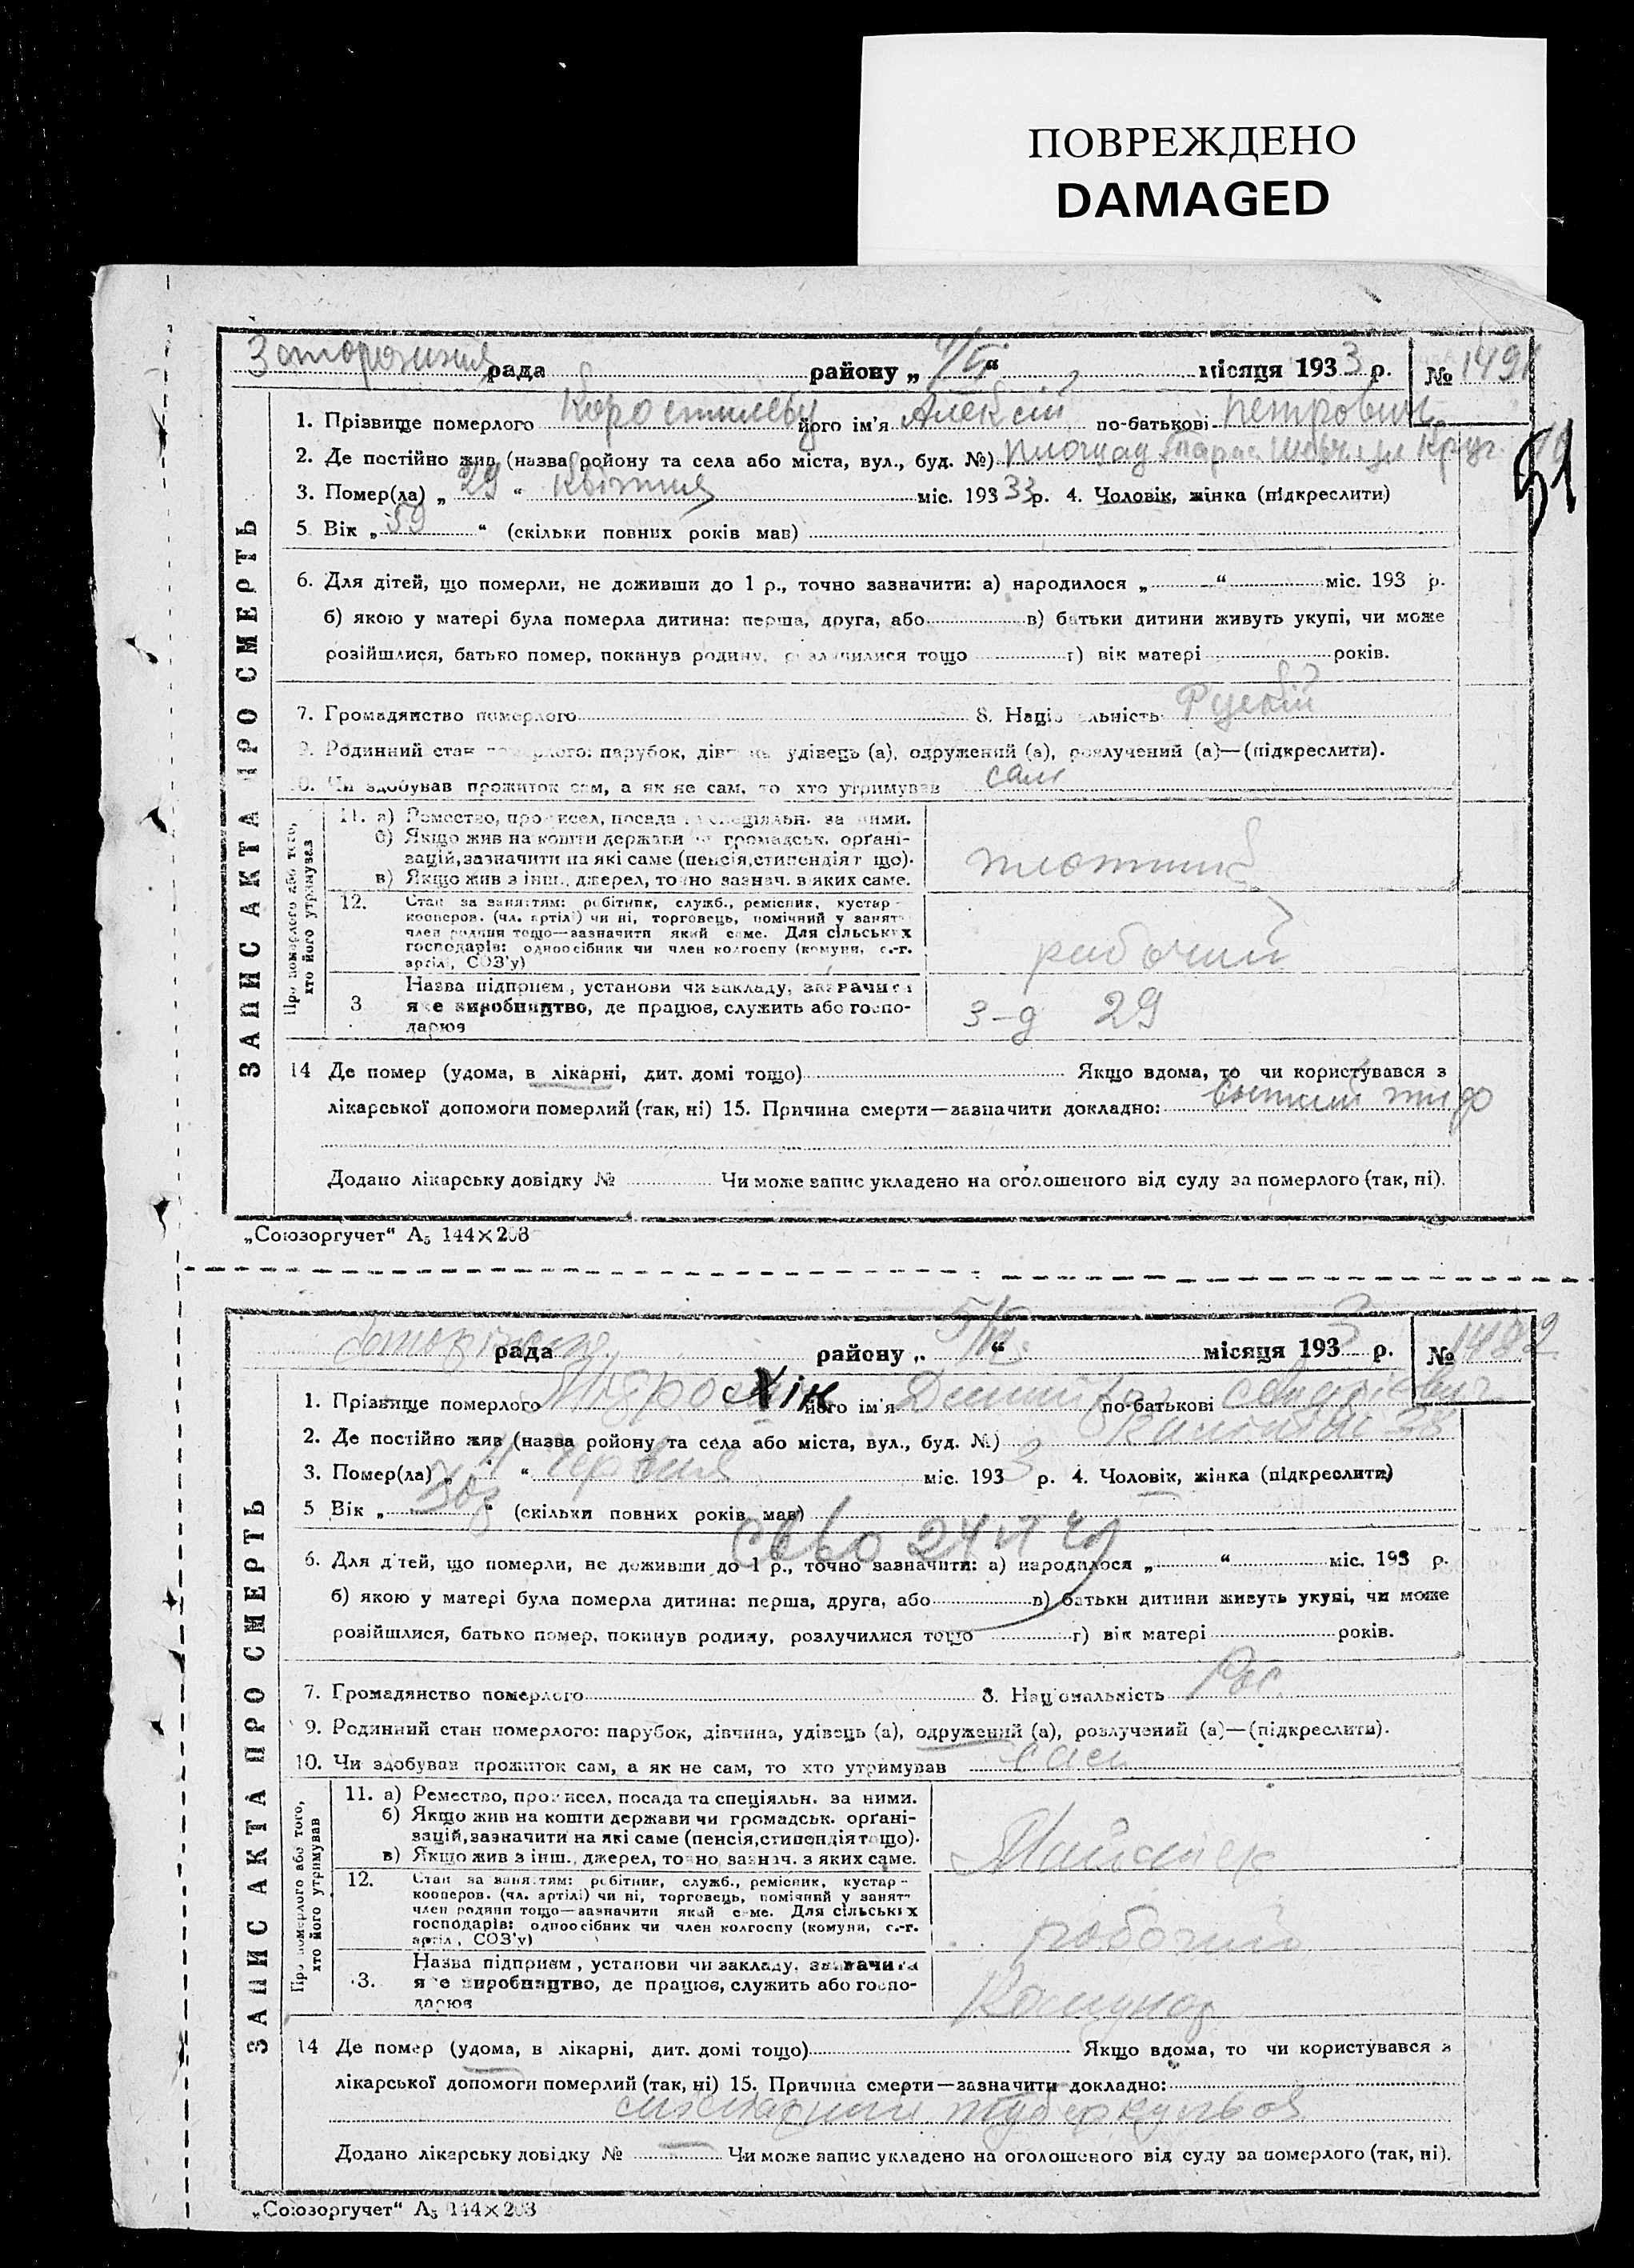 ПОВРЕЖДЕНО
DAMAGED
рада району „ “ місяця 1933 р. № 1491
1. Прізвище померлого його ім'я Алексій по-батькові петрович
2. Де постійно жив (назва ройону та села або міста, вул., буд. №) площад Тараса
3. Помер(ла) „ 29 “ Квітня міс. 193 33 р. 4. Чоловік, жінка (підкреслити)
51
5. Вік „ 59 “ (скільки повних років мав)
6. Для дітей, що померли, не доживши до 1 р., точно зазначити: а) народилося „ “ міс. 193 р.
б) якою у матері була померла дитина: перша, друга, або в) батьки дитини живуть укупі, чи може
розійшлися, батько помер, покинув родину, розлучилися тощо г) вік матері років.
7. Громадянство померлого 8. Національність Рускій
9. Родинний стан померлого: парубок, дівчина, удівець (а), одружений (а), розлучений (а)—(підкреслити).
10. Чи здобував прожиток сам, а як не сам, то хто утримував сам
ЗАПИС АКТА ПРО СМЕРТЬ
Про померлого або того, хто його утримував
11. а) Ремество, промисел, посада та спеціяльн. за ними.
б) Якщо жив на кошти держави чи громадськ. орґані-
зацій, зазначити на які саме (пенсія, стипендія тощо).
в) Якщо жив з інш. джерел, точно зазнач. з яких саме.
плотник
12. Стан за заняттям: робітник, служб., ремісник, кустар-
кооперов. (чл. артілі) чи ні, торговець, помічний у занят.
член родини тощо—зазначити який саме. Для сільських
господарів: одноосібник чи член колгоспу (комуни, с.-г.
артілі, СОЗ'у)
рабочий
3 Назва підприєм., установи чи закладу, зазначити
яке виробництво, де працює, служить або госпо-
дарює
з-д 29
14 Де помер (удома, в лікарні, дит. домі тощо) Якщо вдома, то чи користувався з
лікарської допомоги померлий (так, ні) 15. Причина смерти—зазначити докладно:
Додано лікарську довідку № Чи може запис укладено на оголошеного від суду за померлого (так, ні).
„Союзоргучет“ А₅ 144×203
рада району „ “ місяця 1933 р. № 1492
1. Прізвище померлого його ім'я по-батькові
2. Де постійно жив (назва ройону та села або міста, вул., буд. №)
3. Помер(ла) „ 4 “ Червня міс. 1933 р. 4. Чоловік, жінка (підкреслити)
5 Вік „ “ (скільки повних років мав)
6. Для дітей, що померли, не доживши до 1 р., точно зазначити: а) народилося „ “ міс. 193 р.
б) якою у матері була померла дитина: перша, друга, або в) батьки дитини живуть укупі, чи може
розійшлися, батько помер, покинув родину, розлучилися тощо г) вік матері років.
7. Громадянство померлого 8. Національність Рос.
9. Родинний стан померлого: парубок, дівчина, удівець (а), одружений (а), розлучений (а)—(підкреслити).
10. Чи здобував прожиток сам, а як не сам, то хто утримував сам
ЗАПИС АКТА ПРО СМЕРТЬ
Про померлого або того, хто його утримував
11. а) Ремество, промисел, посада та спеціяльн. за ними.
б) Якщо жив на кошти держави чи громадськ. орґані-
зацій, зазначити на які саме (пенсія, стипендія тощо).
в) Якщо жив з інш. джерел, точно зазнач. з яких саме.
12. Стан за заняттям: робітник, служб., ремісник, кустар-
кооперов. (чл. артілі) чи ні, торговець, помічний у занят.
член родини тощо—зазначити який саме. Для сільських
господарів: одноосібник чи член колгоспу (комуни, с.-г.
артіл., СОЗ'у)
робочий
3. Назва підприєм., установи чи закладу, зазначити
яке виробництво, де працює, служить або госпо-
дарює
Комунар
14 Де помер (удома, в лікарні, дит. домі тощо) Якщо вдома, то чи користувався з
лікарської допомоги померлий (так, ні) 15. Причина смерти—зазначити докладно:
туберкульоз
Додано лікарську довідку № Чи може запис укладено на оголошеного від суду за померлого (так, ні).
„Союзоргучет“ А₅ 144×203